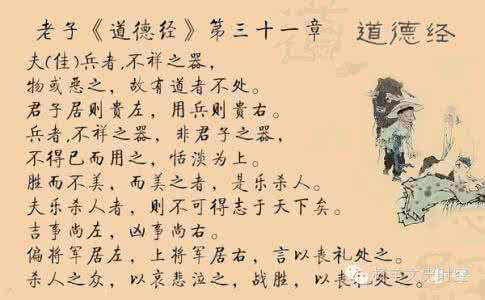 老子《道德经》第三十一章
道德经
夫(佳)兵者,不祥之器,
物或恶之，故有道者不处。
君子居则貴左，用兵则貴右。
兵者,不祥之器，非君子之器，
不得已而用之，恬淡为上。
胜而不美，而美之者，是乐杀人。
夫乐杀人者，则不可得志于天下矣。
吉事尚左，凶事尚右。
偏将军居左，上将军居右，言以丧礼处之。
杀人之众，以哀悲泣之，战胜，以丧礼处之。